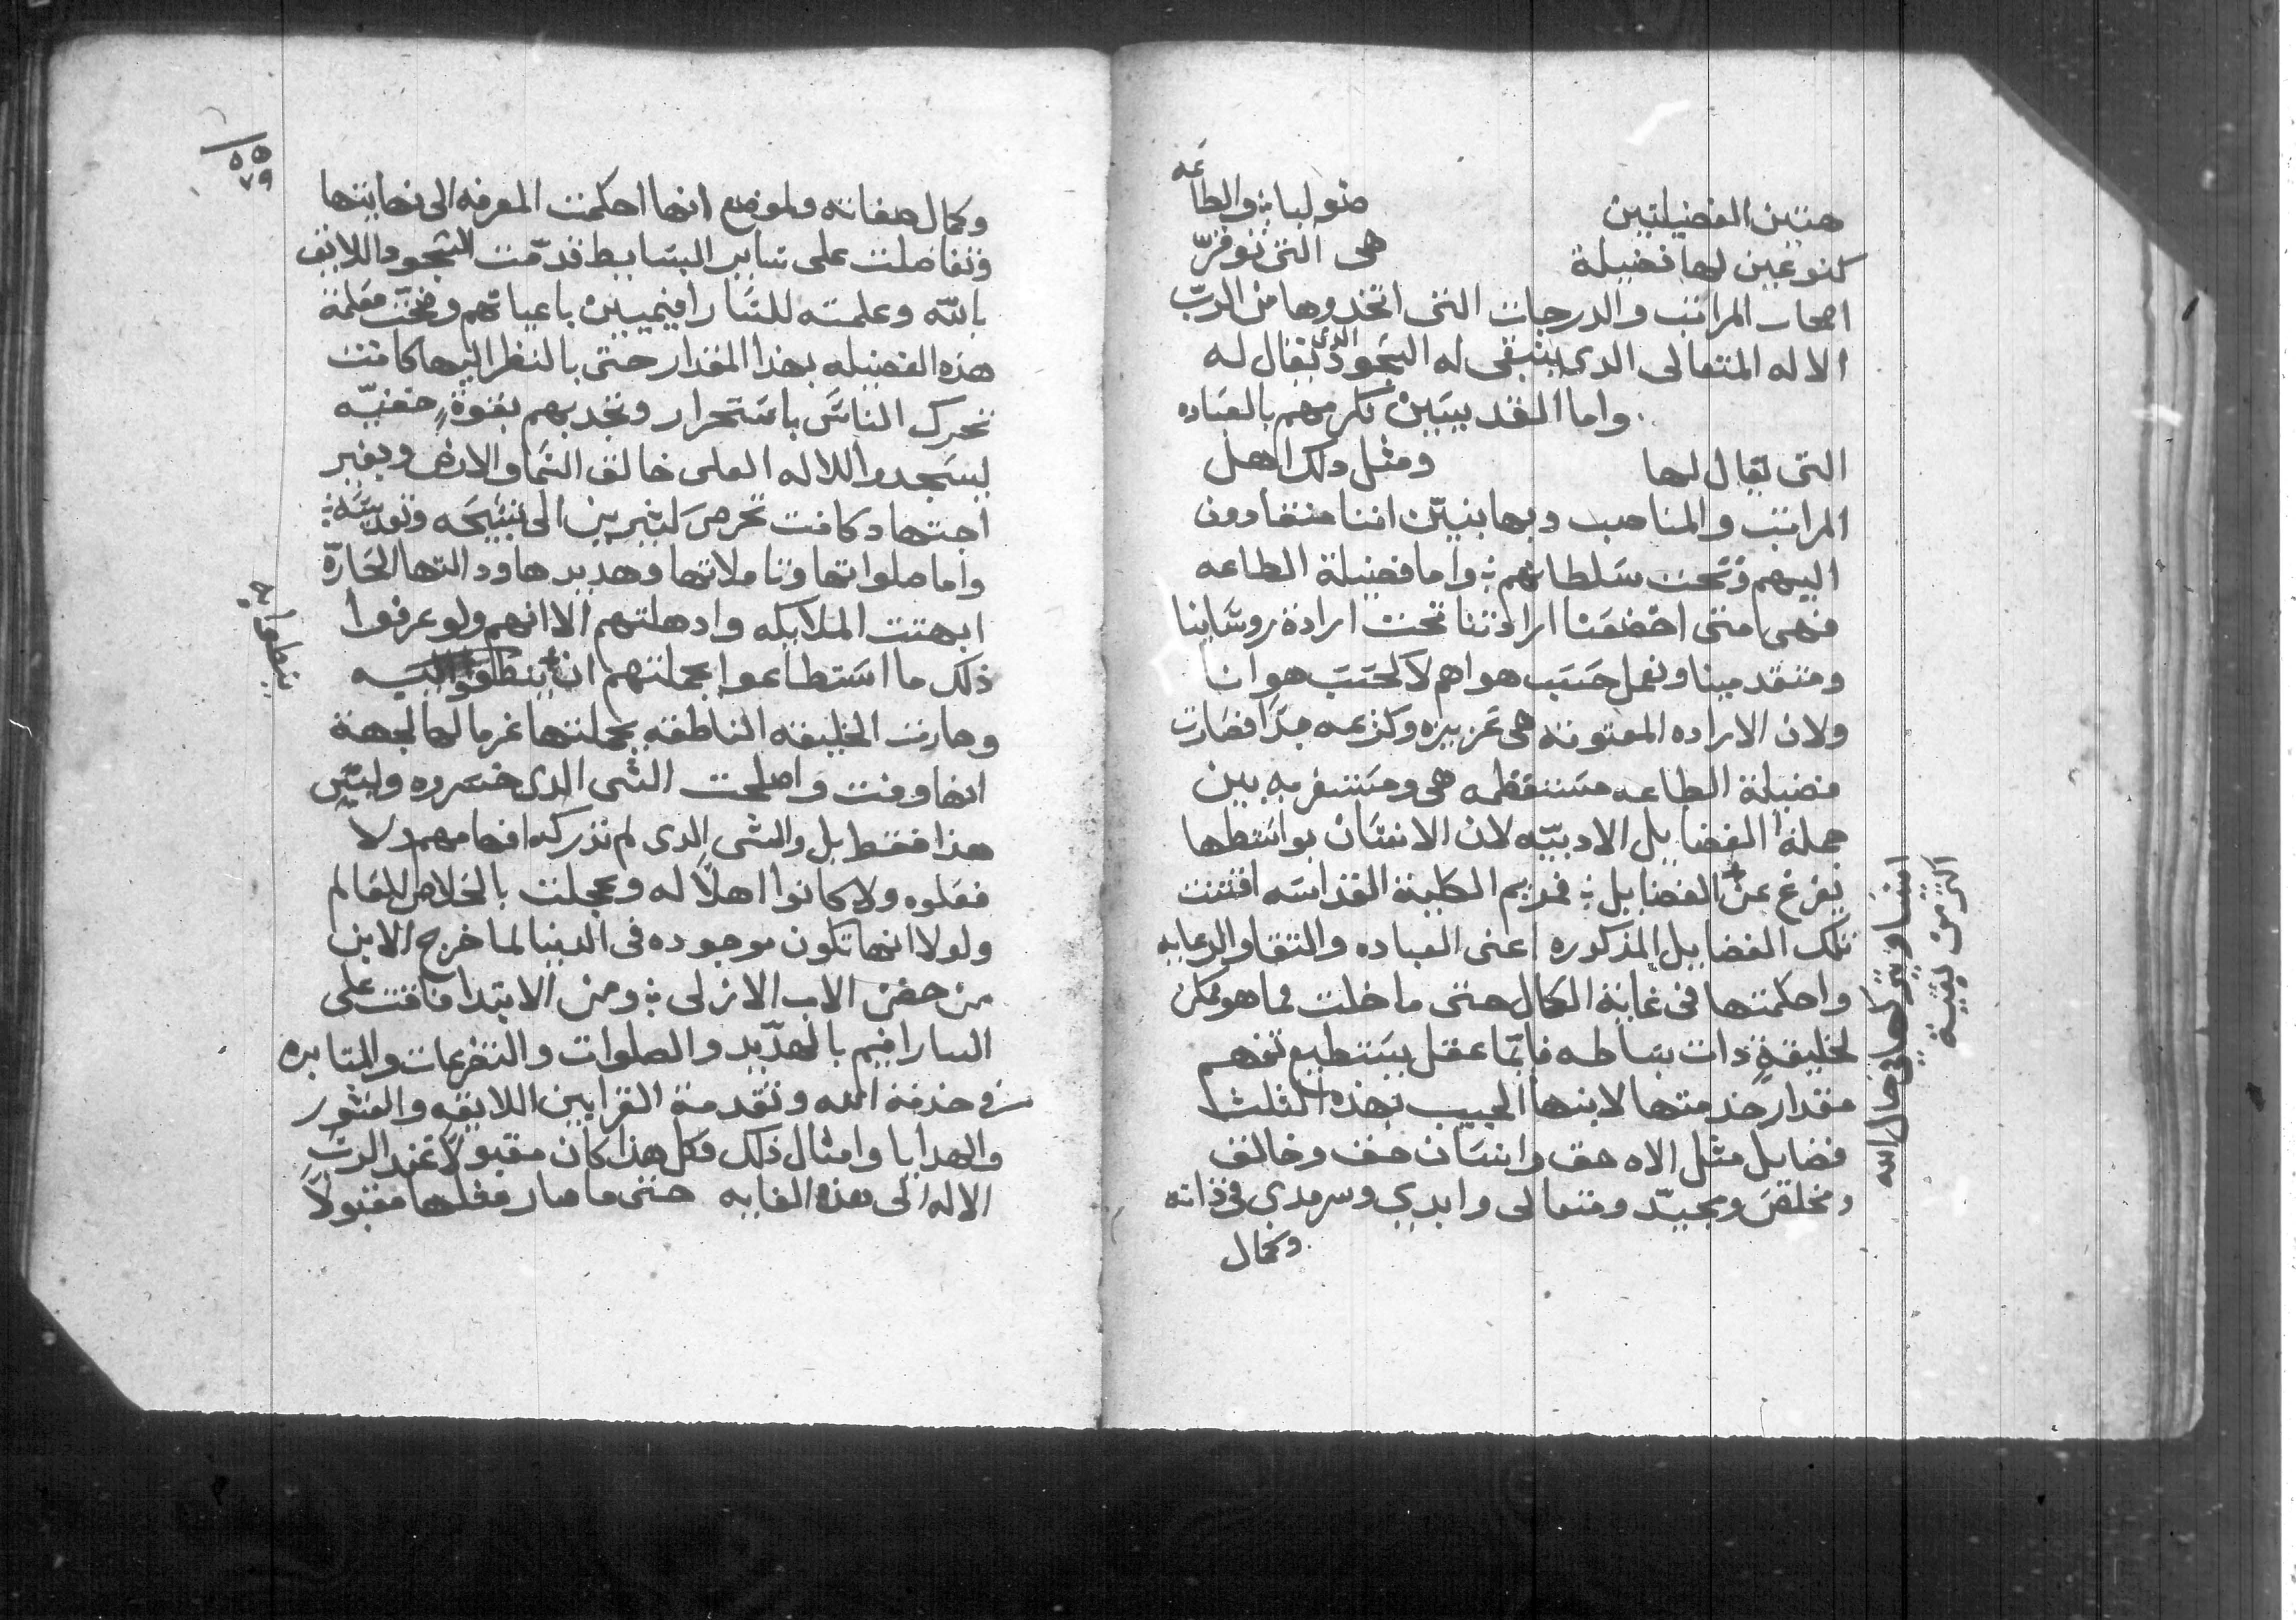 هتين الفضيلتين صوليا ÷ والطاعه
كنوعين لها فضيلة هى التى توقرّ
اصحاب المراتب والدرجات التى اتخدوها من الربّ
الاله المتعالى الدى ينبغى له السجود الدى يقال له
واما القديسين نكرمهم بالعباده
التى يقال لها ومثل دلك اهل
المراتب والمناصب وبها نبيّن اننا منقادون
اليهم وتحت سلطانهم ÷ واما فضيلة الطاعه
فهى متى اخضعنا ارادتنا تحت ارادة روسانا
ومتقدمينا ونعمل حسب هواهم لا كحسب هوانا
ولان الاراده المعتوقه هى عزيزه وكريمه جدًا فصارت
فضيلة الطاعه مستعظمه هى ومستغربه بين
جملة الفضايل الادبيّه لان الانسان بواسطتها
يفرغ عن الفضايل ÷ فمريم الكلية القداسه اقتنت
تلك الفضايل المذكوره اعنى العباده والتقا والرعايه
واحكمتها فى غاية الكمال حتى ما خلت مما هو ممكن
لخليقةٍ ذات بساطه فايّما عقل يستطيع تفهم
مقدار خدمتها لابنها الحبيب بهذه الثلث
فضايل مثل الاه حق وانسان حق وخالق
ومخلص ومجيد ومتعالى وابدي وسرمدي فى ذاته
وكمال
امنا وشركاها فى خال الله
اكثر من ليتيه
٥٥
٧٩
وكمال صفاته ولموضع انها احكمت المعرفه الى نهايتها
وتفاضلت على ساير البسايط قدّمت السجود اللايق
بالله وعلمته للسارافيميين باعيانهم وضحّت معلمة
هذه الفضيله بهذا المقدار حتى بالنظر اليها كانت
تحرك الناس باستمرار وتجدبهم بقوةٍ خفيّه
ليسجدوا للاله العلى خالق السما والارض وبغير
اجتهاد كانت تحرص ليثيرين الى تسبيحه وتقديسه ÷
واما صلواتها وتاملاتها وهديدها ودالتها الحارّه
ابهتت الملايكه وادهلتهم الا انهم ولو عرفوا
ذلك ما استطاعوا بجملتهم ان ينطقوا اليه
وصارت الخليقه الناطقه بجملتها غرما لها لجهة
انها وفت واصلحت الشى الدى خسروه وليس
هذا فقط بل والشى الدى لم تدركه افهامهم ولا
فعلوه ولا كانوا اهلًا له وعجلت بالخلاص للعالم
ولولا انها تكون موجوده فى الدنيا لما خرج الابن
من حضن الاب الازلى ÷ ومن الابتدا فاقت على
السارافيم بالهدّيد والصلوات والتضرعات والمثابره
فى خدمة الله وتقدمة القرابين اللايقه والعشور
والهدايا وامثال ذلك وكل هذا كان مقبولًا عند الربّ
الاله الى هذه الغايه حتى ما صار مثلها مقبولًا